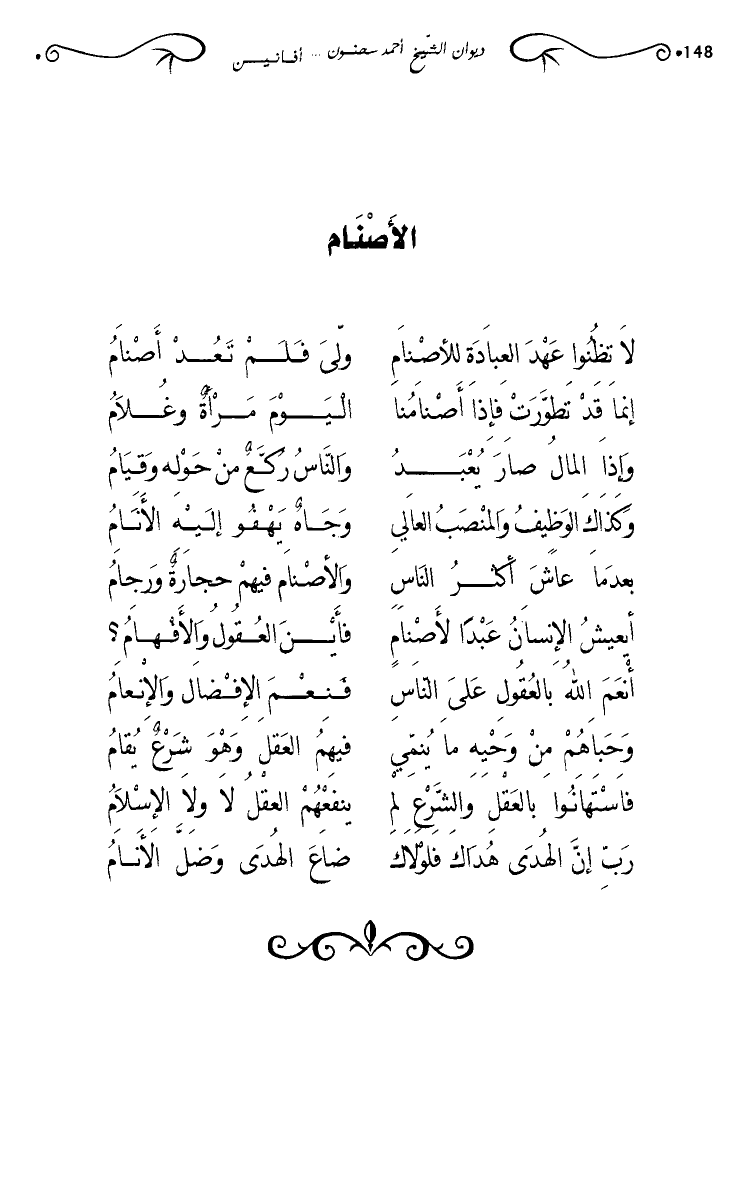 148 ديوان الشّيخ أحمد سحنون ... أفـانـيـــن
الأَصْنَام
لاَ تظُنُوا عَهْدَ العبادَة للأصْنامِ ولّى فَـلَــمْ تَـعُــدْ أَصْنامُ
إنما قَدْ تطوَّرَتْ فإذا أَصْنامُنا الْـيَـــوْمَ مَــرْأةٌ وغُــلاَمُ
وإذا المالُ صارَ يُعْبَــــدُ والنَّاسُ رُكَّعٌ منْ حَوْله وقيَامُ
وكذاكَ الوَظيفُ والمنْصَبُ العالي وَجَـاهٌ يَـهْـفُـو إلَـيْـه الأَنَـامُ
بعدمَا عاشَ أكْثــرُ الناسِ والأصْنام فيهمْ حجارَةٌ ورجامُ
أيعيشُ الإنسانُ عَبْدًا لأَصْنامٍ فأَيْــنَ العُـقُولُ والأَفْـهـامُ؟
أنْعَمَ اللهُ بالعُقولِ عَلىَ الناسِ فَـنـعْــمَ الإفْـضَال والإنْعامُ
وَحَباهُمْ مِنْ وَحْيِه ما يُنمِّي فيهِمُ العَقلَ وَهْوَ شَرْعٌ يُقامُ
فاسْتَهانُوا بالعَقْلِ والشَّرْعِ لمْ ينفَعْهُمْ العقْلُ لا ولا الإسْلاَمُ
رَبِّ إنَّ الهُدَى هُدَاكَ فلوْلاَكَ ضاعَ الهُدَى وَضلَّ الأَنـامُ